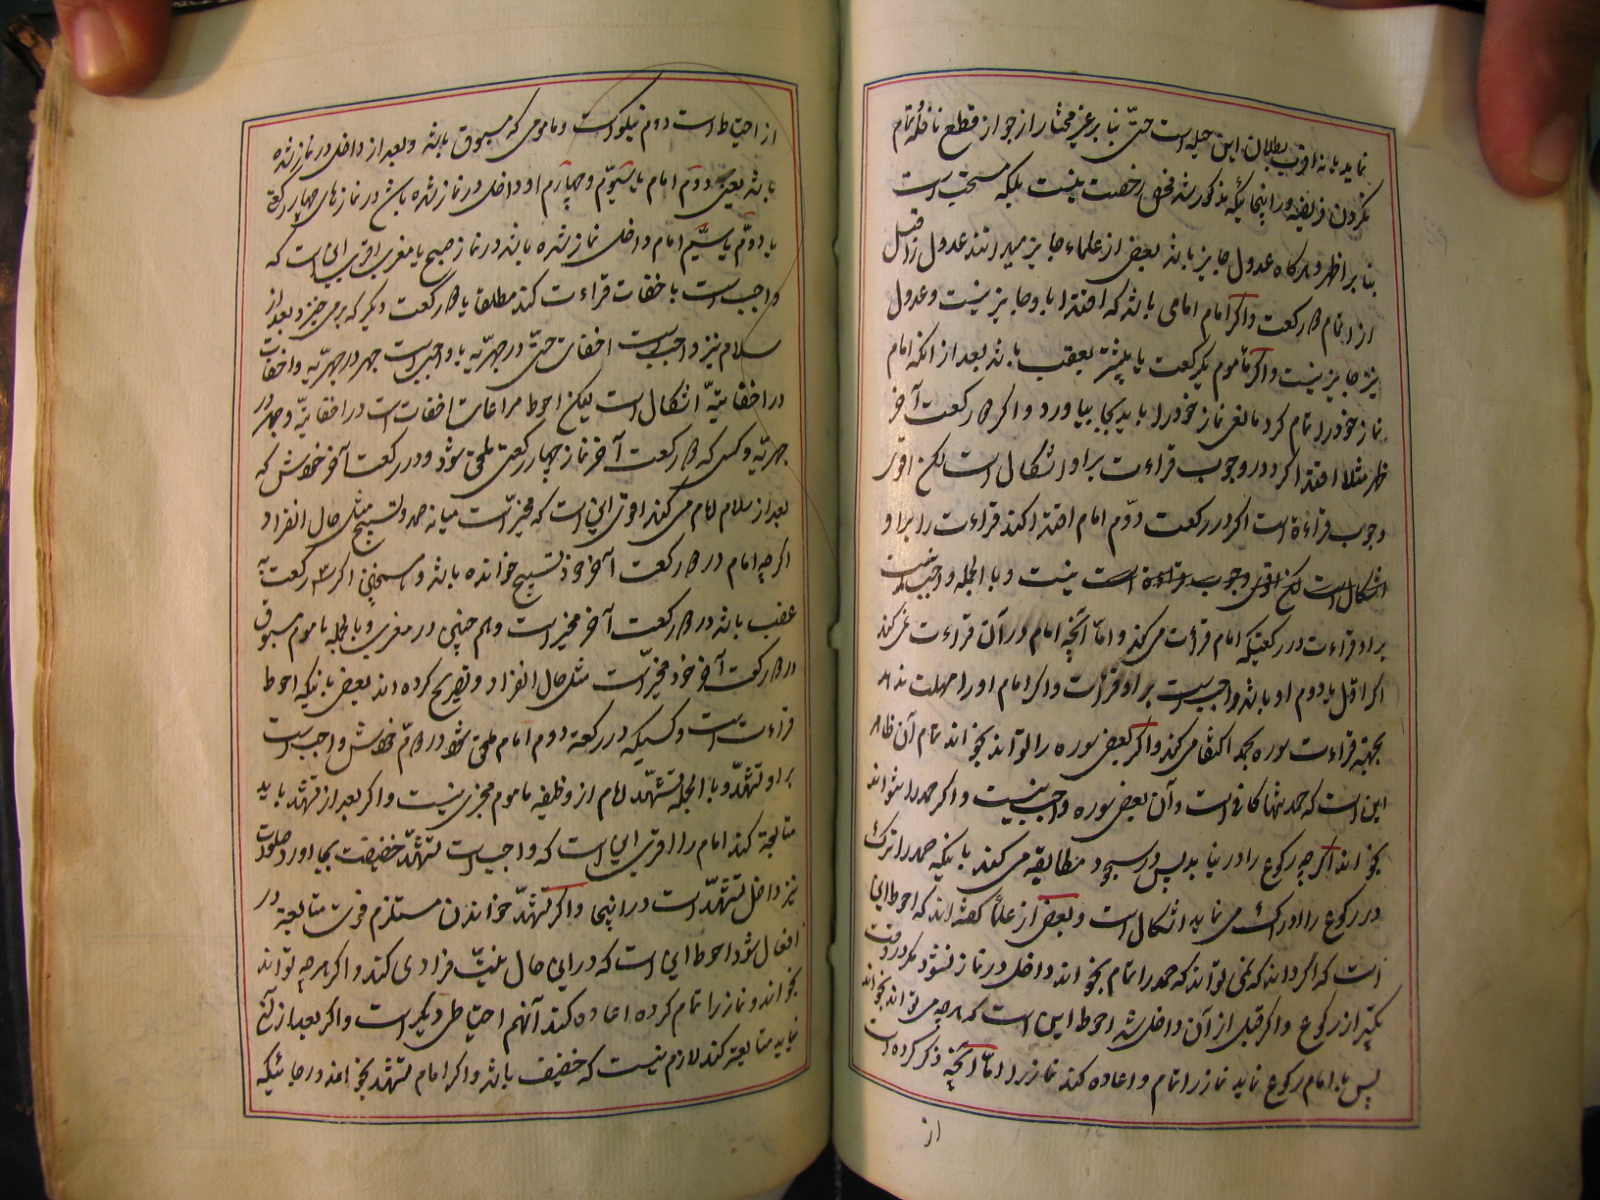 نماید یا نه اقرب بطلان این حیله است حتّی بنا بر غیر مختار از جواز قطع نافله تمام
نکردن فریضه در اینجائیکه مذکور شد محض رخصت نیست بلکه مستحب است
بنا بر اظهر و هر کاه عدول جایز باشد بعضی از علماء جایز میدانند عدول را قبل
از اتمام دو رکعت و اکر امام امامی باشد که اقتدا باو جایز نیست و عدول
نیز جایز نیست و اکر ماموم یکرکعت یا بیشتر بعقب باشد بعد از انکه امام
نماز خود را تمام کرد مابقی نماز خود را باید بجا بیاورد و اکر دو رکعت آخر
ظهر مثلا اقتدا کرد در وجوب قراءت بر او اشکال است لکن اقوی
وجوب قراءة است اکر در رکعت دوّم امام اقتدا کند قراءت را بر او
اشکال است لکن اقوی وجوب قراءة است نیست و بالجمله واجب نیست
بر او قراءت در رکعتیکه امام قرأت می کند و امّا آنچه امام در آن قراءت نمی کند
اکر اوّل یا دوم او باشد واجبست بر او قرأت و اکر امام او را مهلت ندهد
بجهة قراءت سوره بحمد اکتفا می کند و اکر بعض سوره را تواند بخواند تمام آن ظاهر
این است که حمد تنها کافی است و آن بعض سوره واجب نیست و اکر حمد را نتواند
بخواند اکرچه رکوع را در نیابد پس در سجود مطابقه می کند یا اینکه حمد را ترک
در رکوع را ادراک می نماید اشکال است و بعض از علما کفته اند که احوط این
است که اکر داند که نمی تواند که حمد را تمام بخواند داخل در نماز نشود مکر در وقت
تکبیر از رکوع و اکر قبل از آن داخل شد احوط این است که هر چه می تواند بخواند
پس با امام رکوع نماید نماز را تمام و اعاده کند نماز را امّا آنچه ذکر کرده است
از
از احتیاط است دوم نیکو است و مامومی که مسبوق باشد و بعد از داخل در نماز شده
باشد یعنی دوّم امام یا سیّوم و چهارم او داخل در نماز شده باشد در نمازهای چهار رکعتی
یا دوّم یا سیّم امام داخل نماز شده باشد در نماز صبح یا مغرب اقوی این است که
واجب است با خفات قراءت کند مطلقا یا دو رکعت دیکر که بر می خیزد بعد از
سلام نیز واجب است اخفات حتّی در جهریّه یا واجب است جهر در جهریّه و اخفات
در اخفاتیّه اشکال است لیکن احوط مراعات اخفات است در اخفاتیّه و جهر در
جهریّه و کسی که دو رکعت آخر نماز چهار رکعتی ملحق شود و در رکعت آخر خودش که
بعد از سلام امام می کند اقوی این است که مخیّر است میانه حمد و تسبیح مثل حال انفراد
اکرچه امام در دو رکعت آخر خود تسبیح خوانده باشد و همچنین اکر سه رکعت به
عقب باشد در دو رکعت آخر مخیر است و هم چنین در مغرب و بالجمله ماموم مسبوق
در دو رکعت آخر خود مخیّر است مثل حال انفراد و تصریح کرده اند بعض باینکه احوط
قراءت است و کسیکه در رکعة دوم امام ملحق شود در دوّم خودش واجب است
بر او تشهّد و بالجمله تشهّد امام از وظیفه ماموم مجزی نیست و اکر بعد از تشهّد باید
متابعة کند امام را اقوی این است که واجب است تشهّد خفیفت بجا اورد و صلوات
نیز داخل تشهّد است در اینجا و اکر تشهّد خواندن مستلزم فوت متابعة در
افعال شود احوط این است که در این حال نیّت فرادی کند و اکر هر چه تواند
بخواند و نماز را تمام کرده اعاده کند آنهم احتیاط دیکر است و اکر بعد از آن
نباید متابعة کند لازم نیست که خفیف باشد و اکر امام تشهّد بخواند در جائیکه